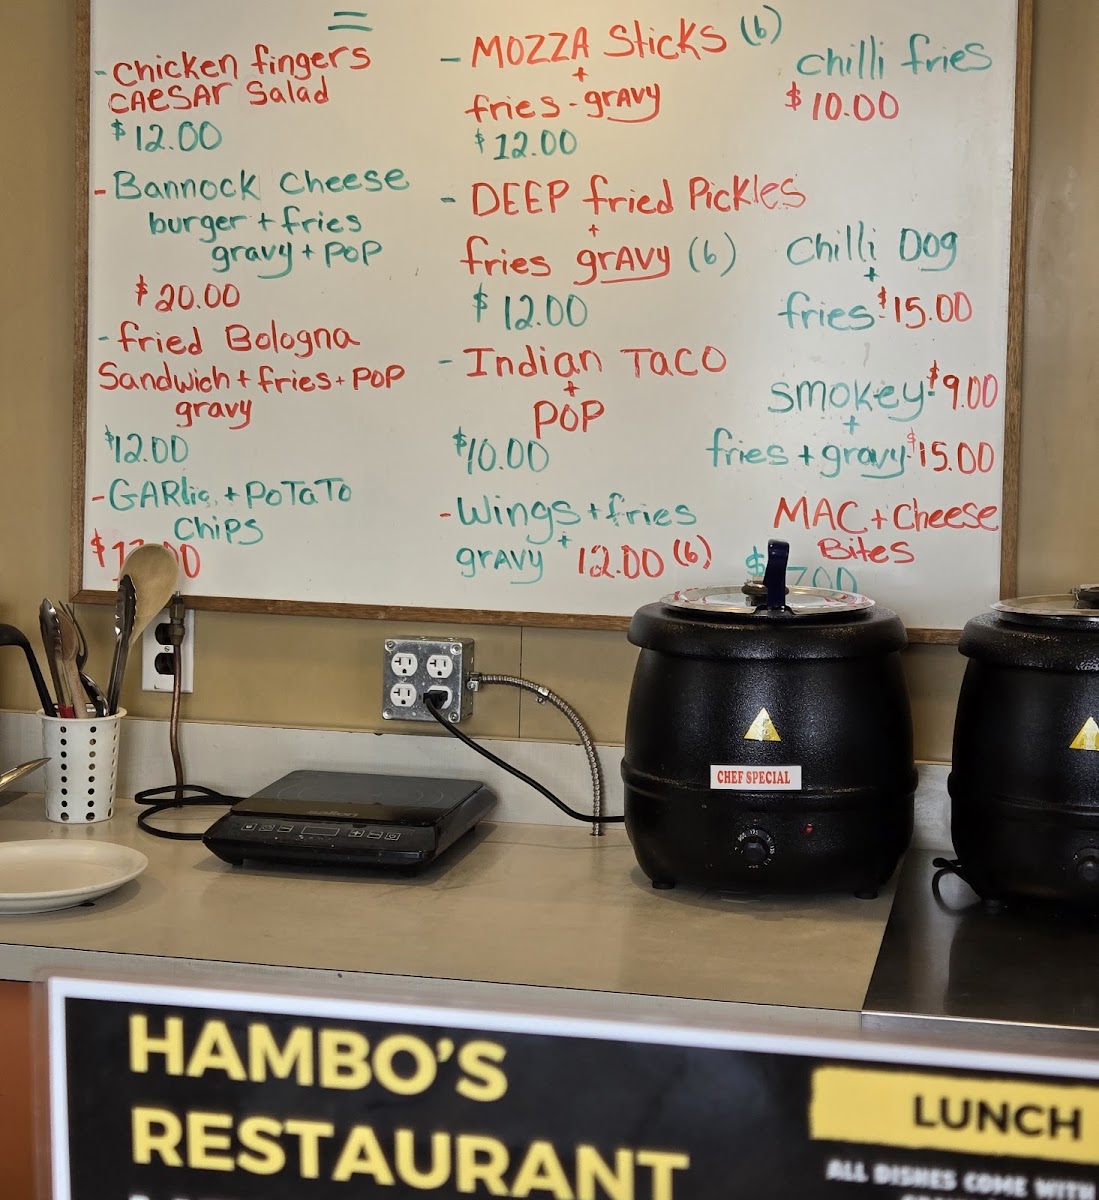 - Chicken fingers
CAESAR Salad
$12.00
- Bannock Cheese
burger + fries
gravy + POP
$20.00
- fried Bologna
Sandwich + fries + POP
gravy
$12.00
- GARlic + PoTaTo
Chips
- MOZZA Sticks (6)
+
fries - grAvy
$12.00
- DEEP fried Pickles
+
fries grAvy (6)
$12.00
- Indian TACO
+
POP
$10.00
- Wings + fries
grAvy + 12.00 (6)
Chilli fries
$10.00
Chilli Dog
+
fries - $15.00
smokey - $9.00
+
fries + gravy - $15.00
MAC + Cheese
Bites
CHEF SPECIAL
HAMBO'S
RESTAURANT
LUNCH
ALL DISHES COME WITH